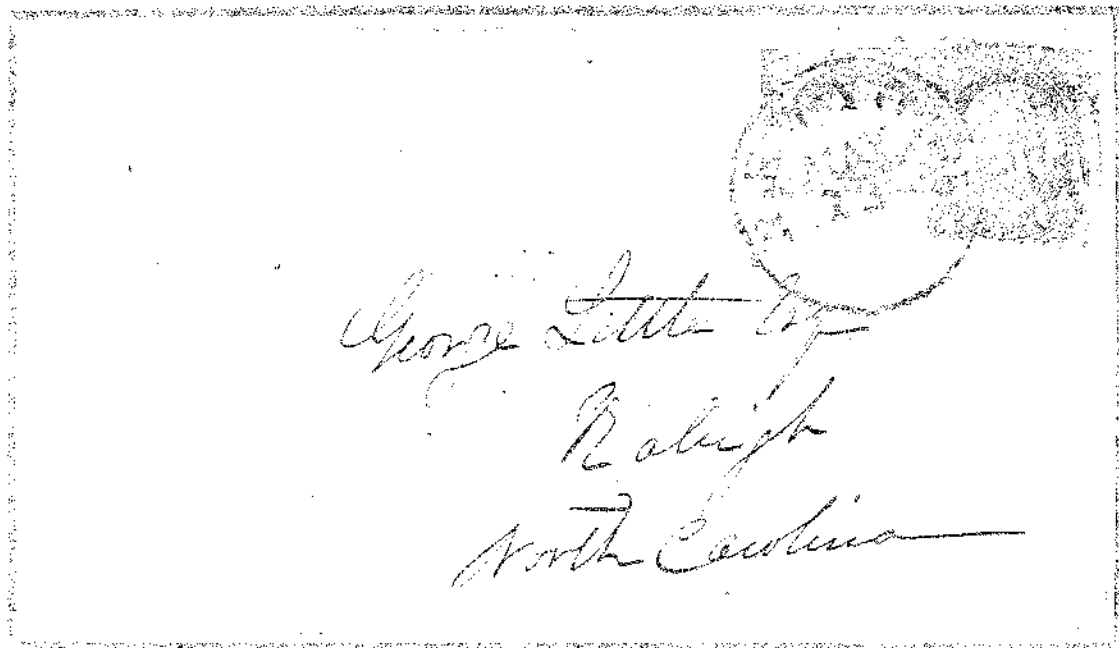 George Little Esq
Raleigh
North Carolina